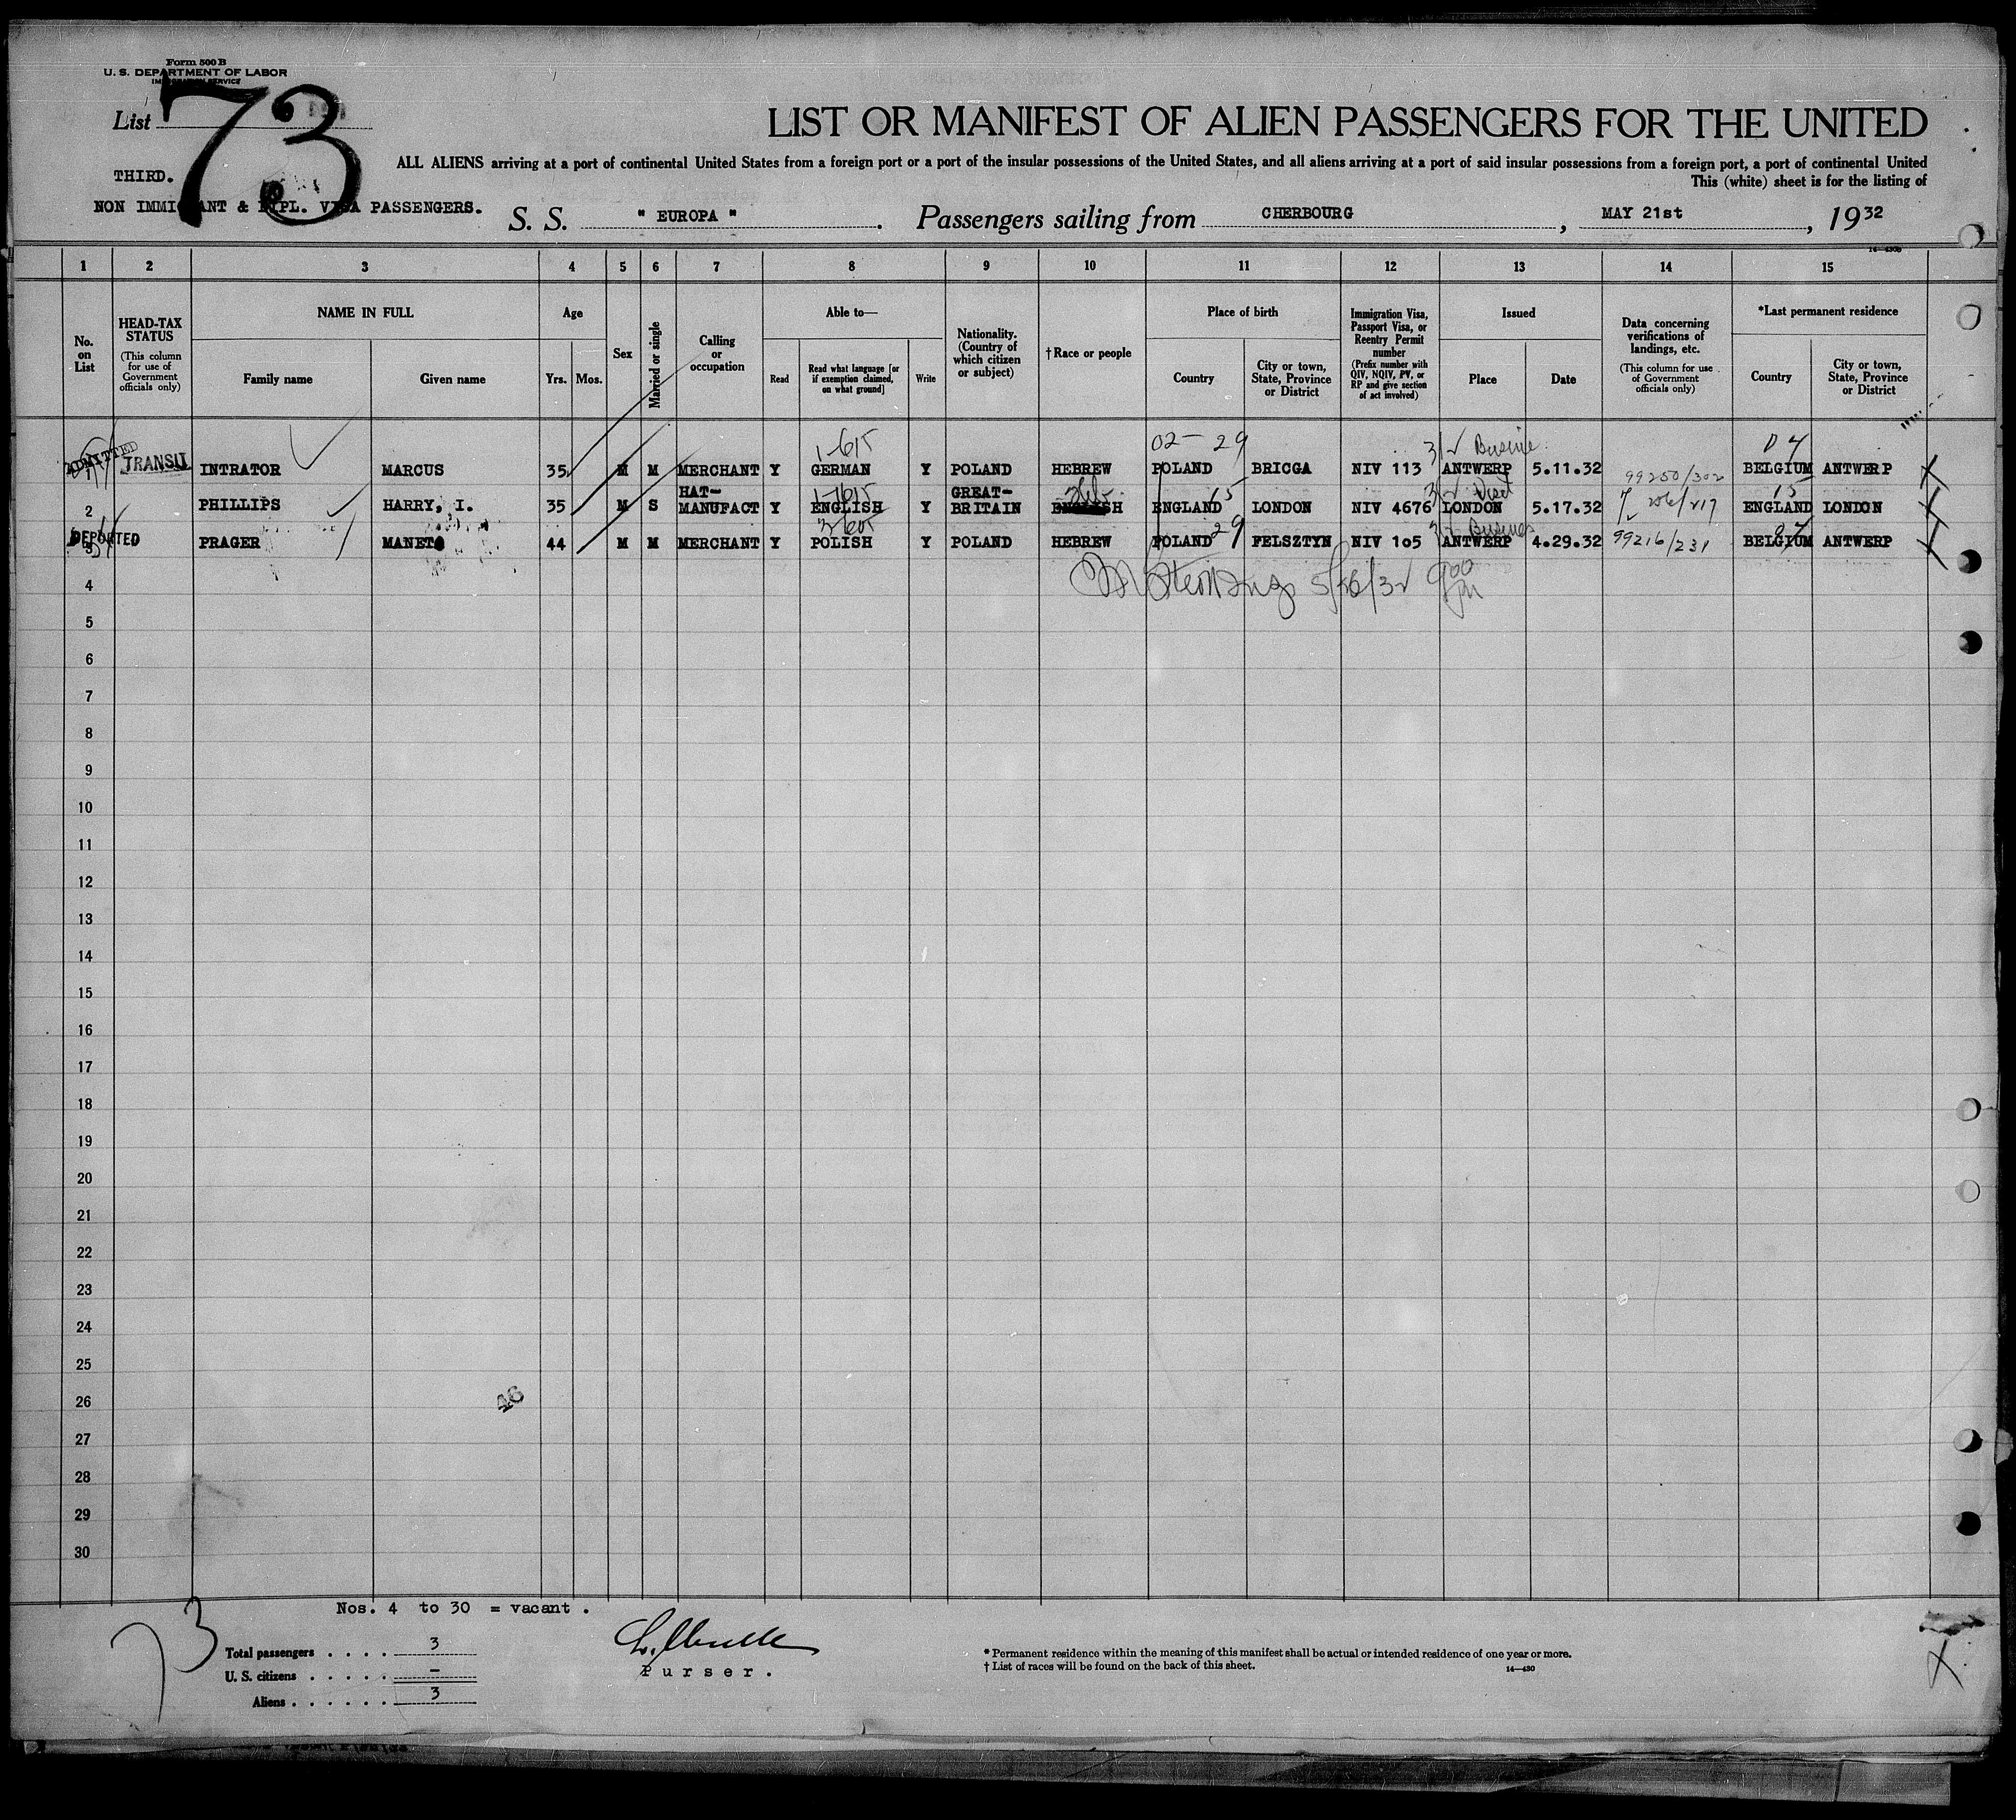 Form 500 B
U. S. DEPARTMENT OF LABOR
IMMIGRATION SERVICE
List 73
LIST OR MANIFEST OF ALIEN PASSENGERS FOR THE UNITED
ALL ALIENS arriving at a port of continental United States from a foreign port or a port of the insular possessions of the United States, and all aliens arriving at a port of said insular possessions from a foreign port, a port of continental United
This (white) sheet is for the listing of
THIRD.
NON IMMIGRANT & DIPL. VISA PASSENGERS.
S. S. " EUROPA " . Passengers sailing from CHERBOURG , MAY 21st , 1932
14—430b
1 2 3 4 5 6 7 8 9 10 11 12 13 14 15
No. on List
HEAD-TAX STATUS (This column for use of Government officials only)
NAME IN FULL
Family name Given name
Age
Yrs. Mos.
Sex
Married or single
Calling or occupation
Able to—
Read
Read what language [or if exemption claimed, on what ground]
Write
Nationality. (Country of which citizen or subject)
†Race or people
Place of birth
Country
City or town, State, Province or District
Immigration Visa, Passport Visa, or Reentry Permit number (Prefix number with QIV, NQIV, PV, or RP and give section of act involved)
Issued
Place Date
Data concerning verifications of landings, etc. (This column for use of Government officials only)
*Last permanent residence
Country
City or town, State, Province or District
1-615 02-29 3/2
ADMITTED TRANSIT INTRATOR MARCUS 35 M M MERCHANT Y GERMAN Y POLAND HEBREW POLAND BRICGA NIV 113 ANTWERP 5.11.32 99250/302 BELGIUM ANTWERP
HAT- 1-1615 GREAT- Heb. 15 3/2 Visit 15
2 PHILLIPS HARRY, I. 35 M S MANUFACT Y ENGLISH Y BRITAIN ENGLISH ENGLAND LONDON NIV 4676 LONDON 5.17.32 ENGLAND LONDON
3-605 29 3/2 Business
DEPORTED 3 PRAGER MANETO 44 M M MERCHANT Y POLISH Y POLAND HEBREW POLAND FELSZTYN NIV 105 ANTWERP 4.29.32 99216/231 BELGIUM ANTWERP
4 5/26/32 900
5
6
7
8
9
10
11
12
13
14
15
16
17
18
19
20
21
22
23
24
25
26 46
27
28
29
30
Nos. 4 to 30 = vacant .
73
Total passengers . . . . 3
U. S. citizens . . . . . —
Aliens . . . . . . 3
Purser.
* Permanent residence within the meaning of this manifest shall be actual or intended residence of one year or more.
† List of races will be found on the back of this sheet.
14—430